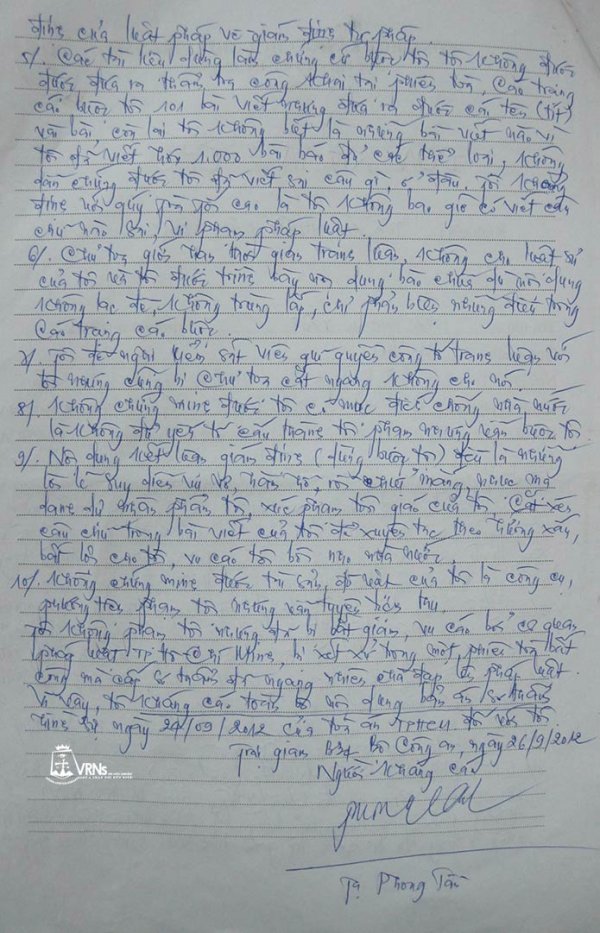 định của luật pháp về giám định tư pháp.
5/. Các tài liệu dùng làm chứng cứ buộc tội tôi không được
được đưa ra thẩm tra công khai tại phiên tòa, Cáo trạng
cáo buộc tôi 101 bài viết nhưng đưa ra được có tên (tít)
vài bài, còn lại tôi không biết là những bài viết nào vì
tôi đã viết hơn 1.000 bài báo đủ các thể loại, không
dẫn chứng được tôi đã viết sai câu gì, ở đâu. Tôi khẳng
định với quý tòa tối cao là tôi không bao giờ có viết câu
chữ nào sai, vi phạm pháp luật.
6/. Chủ tọa giới hạn thời gian tranh luận, không cho luật sư
của tôi và tôi được trình bày nội dung bào chữa dù nội dung
không lạc đề, không trùng lắp, chỉ phản biện những điều trong
Cáo trạng cáo buộc.
7/ Tôi đề nghị kiểm sát viên giữ quyền công tố tranh luận với
tôi nhưng cũng bị Chủ tọa cắt ngang không cho nói.
8/. Không chứng minh được tôi có mục đích chống nhà nước
là không đủ yếu tố cấu thành tội phạm nhưng vẫn buộc tội.
9/. Nội dung kết luận giám định (dùng buộc tội) đều là những
lời lẽ suy diễn vu vơ, hằn hộ, rồi chửi mắng, nhục mạ
danh dự nhân phẩm tôi, xúc phạm tôn giáo của tôi, Cắt xén
câu chữ trong bài viết của tôi để xuyên tạc theo hướng xấu,
bất lợi cho tôi, vu cáo tôi bôi nhọ nhà nước.
10/. Không chứng minh được tài sản, đồ vật của tôi là công cụ,
phương tiện phạm tội nhưng vẫn tuyên tịch thu.
Tôi không phạm tội nhưng đã bị bắt giam, vu cáo bởi cơ quan
pháp luật TP Hồ Chí Minh, bị xét xử trong một phiên tòa bất
công mà cấp sơ thẩm đã ngang nhiên chà đạp lên pháp luật.
Vì vậy, tôi kháng cáo toàn bộ nội dung bản án sơ thẩm
hình sự ngày 24/09/2012 của tòa án TPHCM đối với tôi.
Trại giam B34 Bộ Công an, ngày 26/9/2012
Người kháng cáo
Tạ Phong Tần
VRNs